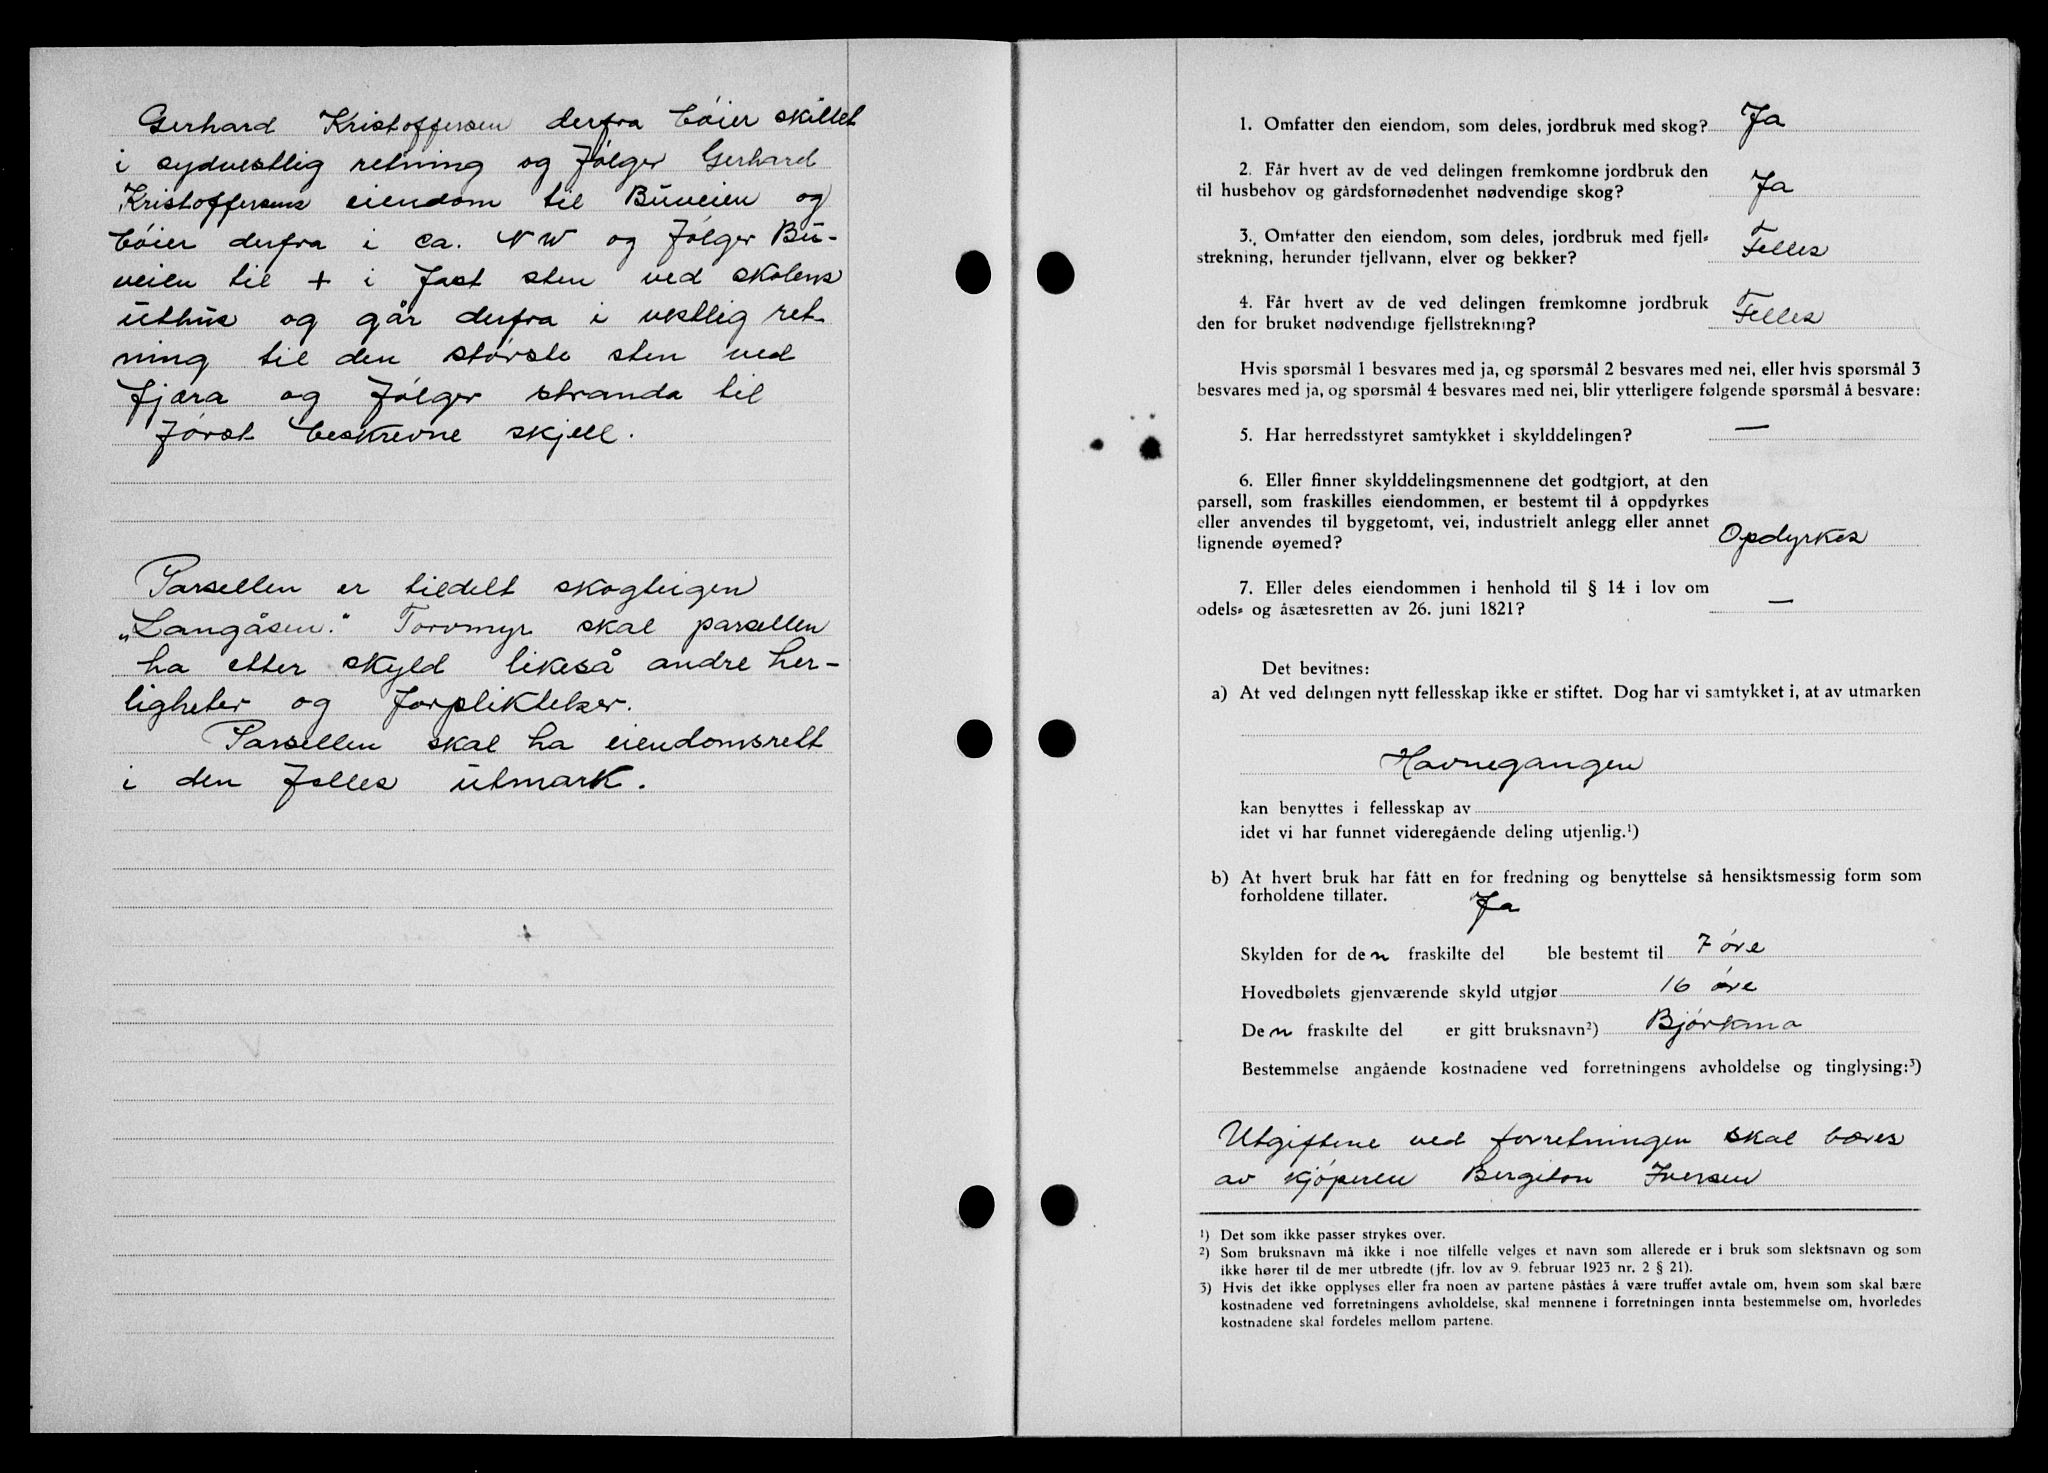 Gerhard Kristoffersen derfra bóier skillet
i sydvestlig retning og fólger Gerhard
Kristoffersens eiendom til Buveien og
bóier derfra i ca. NW og fólger Bu-
veien til + i fast sten ved skolens
uthus og går derfra i vestlig ret-
ning til den störste sten ved
fjæra og fólger stranda til
fórst beskrevne skjell.
Parsellen er tildelt skogteigen
„Langåsen." Torvmyr skal parsellen
ha etter skyld likeså andre her-
ligheter og forpliktelser.
Parsellen skal ha eiendomsrett
i den felles utmark.
1. Omfatter den eiendom, som deles, jordbruk med skog? Ja
2. Får hvert av de ved delingen fremkomne jordbruk den
til husbehov og gårdsfornødenhet nødvendige skog? Ja
3. Omfatter den eiendom, som deles, jordbruk med fjell-
strekning, herunder fjellvann, elver og bekker? Felles
4. Får hvert av de ved delingen fremkomne jordbruk
den for bruket nødvendige fjellstrekning? Felles
Hvis spørsmål 1 besvares med ja, og spørsmål 2 besvares med nei, eller hvis spørsmål 3
besvares med ja, og spørsmål 4 besvares med nei, blir ytterligere følgende spørsmål å besvare:
5. Har herredsstyret samtykket i skylddelingen? —
6. Eller finner skylddelingsmennene det godtgjort, at den
parsell, som fraskilles eiendommen, er bestemt til å oppdyrkes
eller anvendes til byggetomt, vei, industrielt anlegg eller annet
lignende øyemed? Opdyrkes
7. Eller deles eiendommen i henhold til § 14 i lov om
odels- og åsætesretten av 26. juni 1821? —
Det bevitnes:
a) At ved delingen nytt fellesskap ikke er stiftet. Dog har vi samtykket i, at av utmarken
Havnegangen
kan benyttes i fellesskap av
idet vi har funnet videregående deling utjenlig.¹)
b) At hvert bruk har fått en for fredning og benyttelse så hensiktsmessig form som
forholdene tillater. Ja
Skylden for den fraskilte del ble bestemt til 7 øre
Hovedbølets gjenværende skyld utgjør 16 øre
Den fraskilte del er gitt bruksnavn²) Bjórkmo
Bestemmelse angående kostnadene ved forretningens avholdelse og tinglysing:³)
Utgiftene ved forretningen skal bæres
av kjóperen Bergiton Iversen
¹) Det som ikke passer strykes over.
²) Som bruksnavn må ikke i noe tilfelle velges et navn som allerede er i bruk som slektsnavn og som
ikke hører til de mer utbredte (jfr. lov av 9. februar 1923 nr. 2 § 21).
³) Hvis det ikke opplyses eller fra noen av partene påståes å være truffet avtale om, hvem som skal bære
kostnadene ved forretningens avholdelse, skal mennene i forretningen innta bestemmelse om, hvorledes
kostnadene skal fordeles mellom partene.